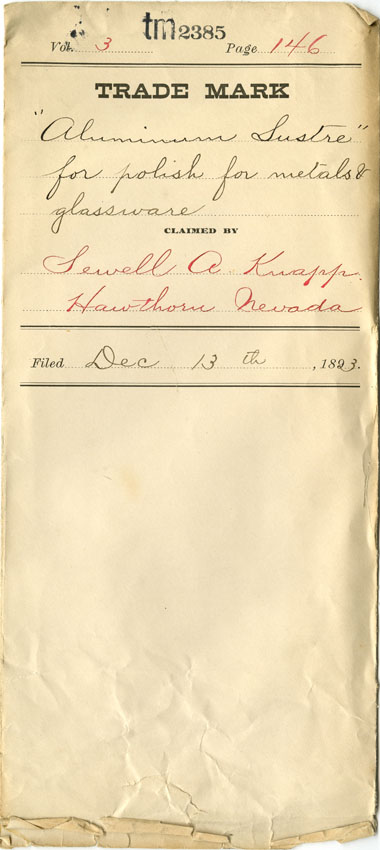 tm2385
Vol. 3 Page 146
TRADE MARK
"Aluminum Lustre"
for polish for metals &
glassware
CLAIMED BY
Sewell A. Knapp.
Hawthorn Nevada
Filed Dec 13 th , 1893.